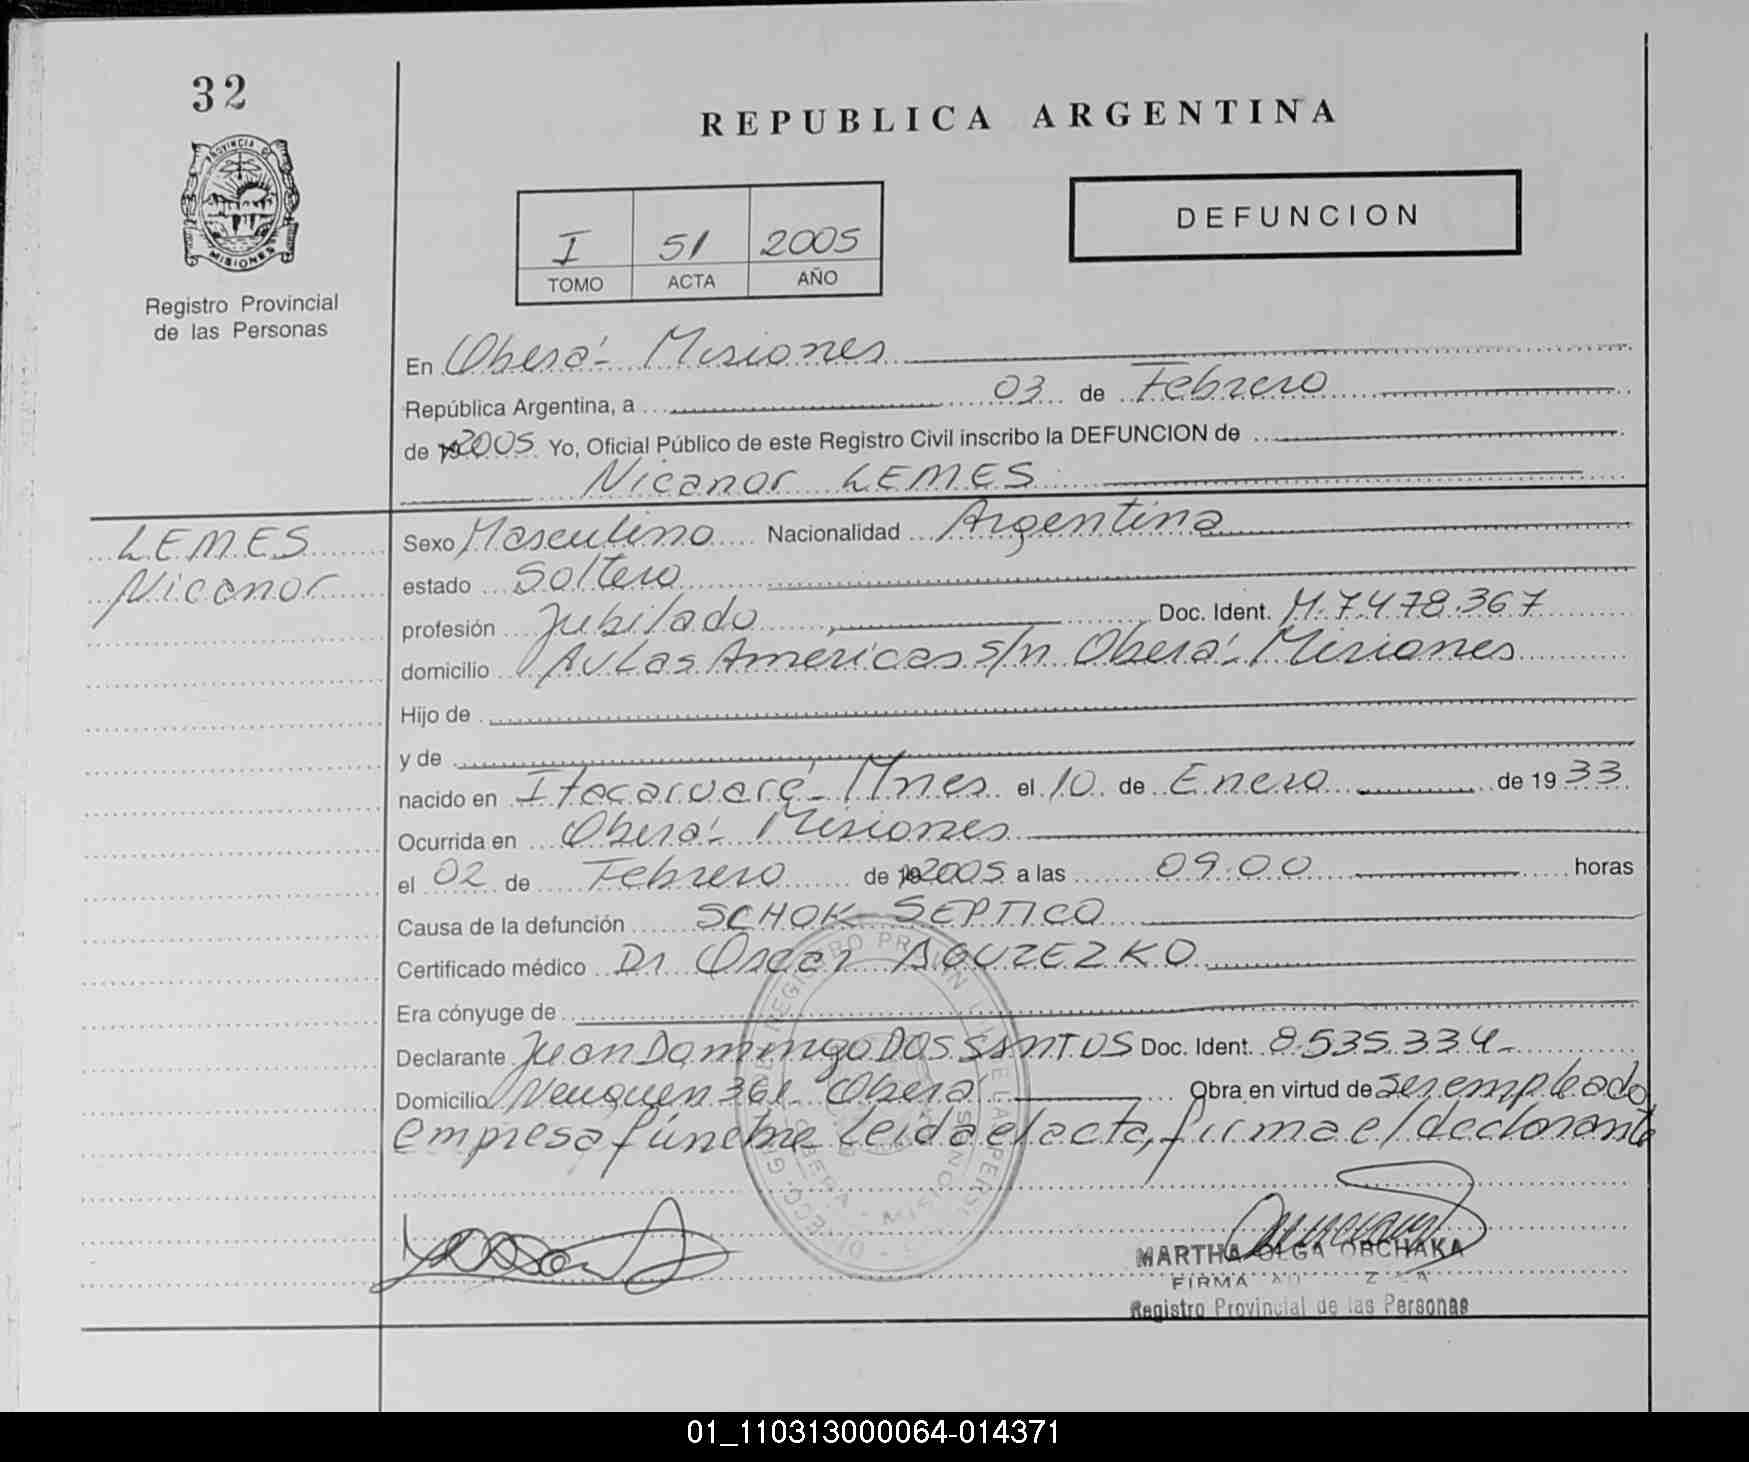 32
REPUBLICA ARGENTINA
PROVINCIA DE
MISIONES
Registro Provincial
de las Personas
DEFUNCION
I 51 2005
TOMO ACTA AÑO
En Oberá - Misiones
República Argentina, a 03 de Febrero
de 2005 Yo, Oficial Público de este Registro Civil inscribo la DEFUNCION de
Nicanor LEMES
LEMES
Nicanor
Sexo Masculino Nacionalidad Argentina
estado Soltero
profesión Jubilado Doc. Ident. M.7.478.367
domicilio Av Las Americas s/n Oberá - Misiones
Hijo de
y de
nacido en Itacaruaré - Mnes el 10 de Enero de 1933
Ocurrida en Oberá - Misiones
el 02 de Febrero de 2005 a las 09:00 horas
Causa de la defunción SCHOK SEPTICO
Certificado médico Dr Oscar
Era cónyuge de
Declarante Juan Domingo DOS SANTOS Doc. Ident. 8.535.334-
Domicilio Neuquen 361 - Oberá Obra en virtud de ser empleado
empresa fúnebre Leida el acta, firma el declarante
MARTHA OLGA ORCHAKA
FIRMA
Registro Provincial de las Personas
01_110313000064-014371